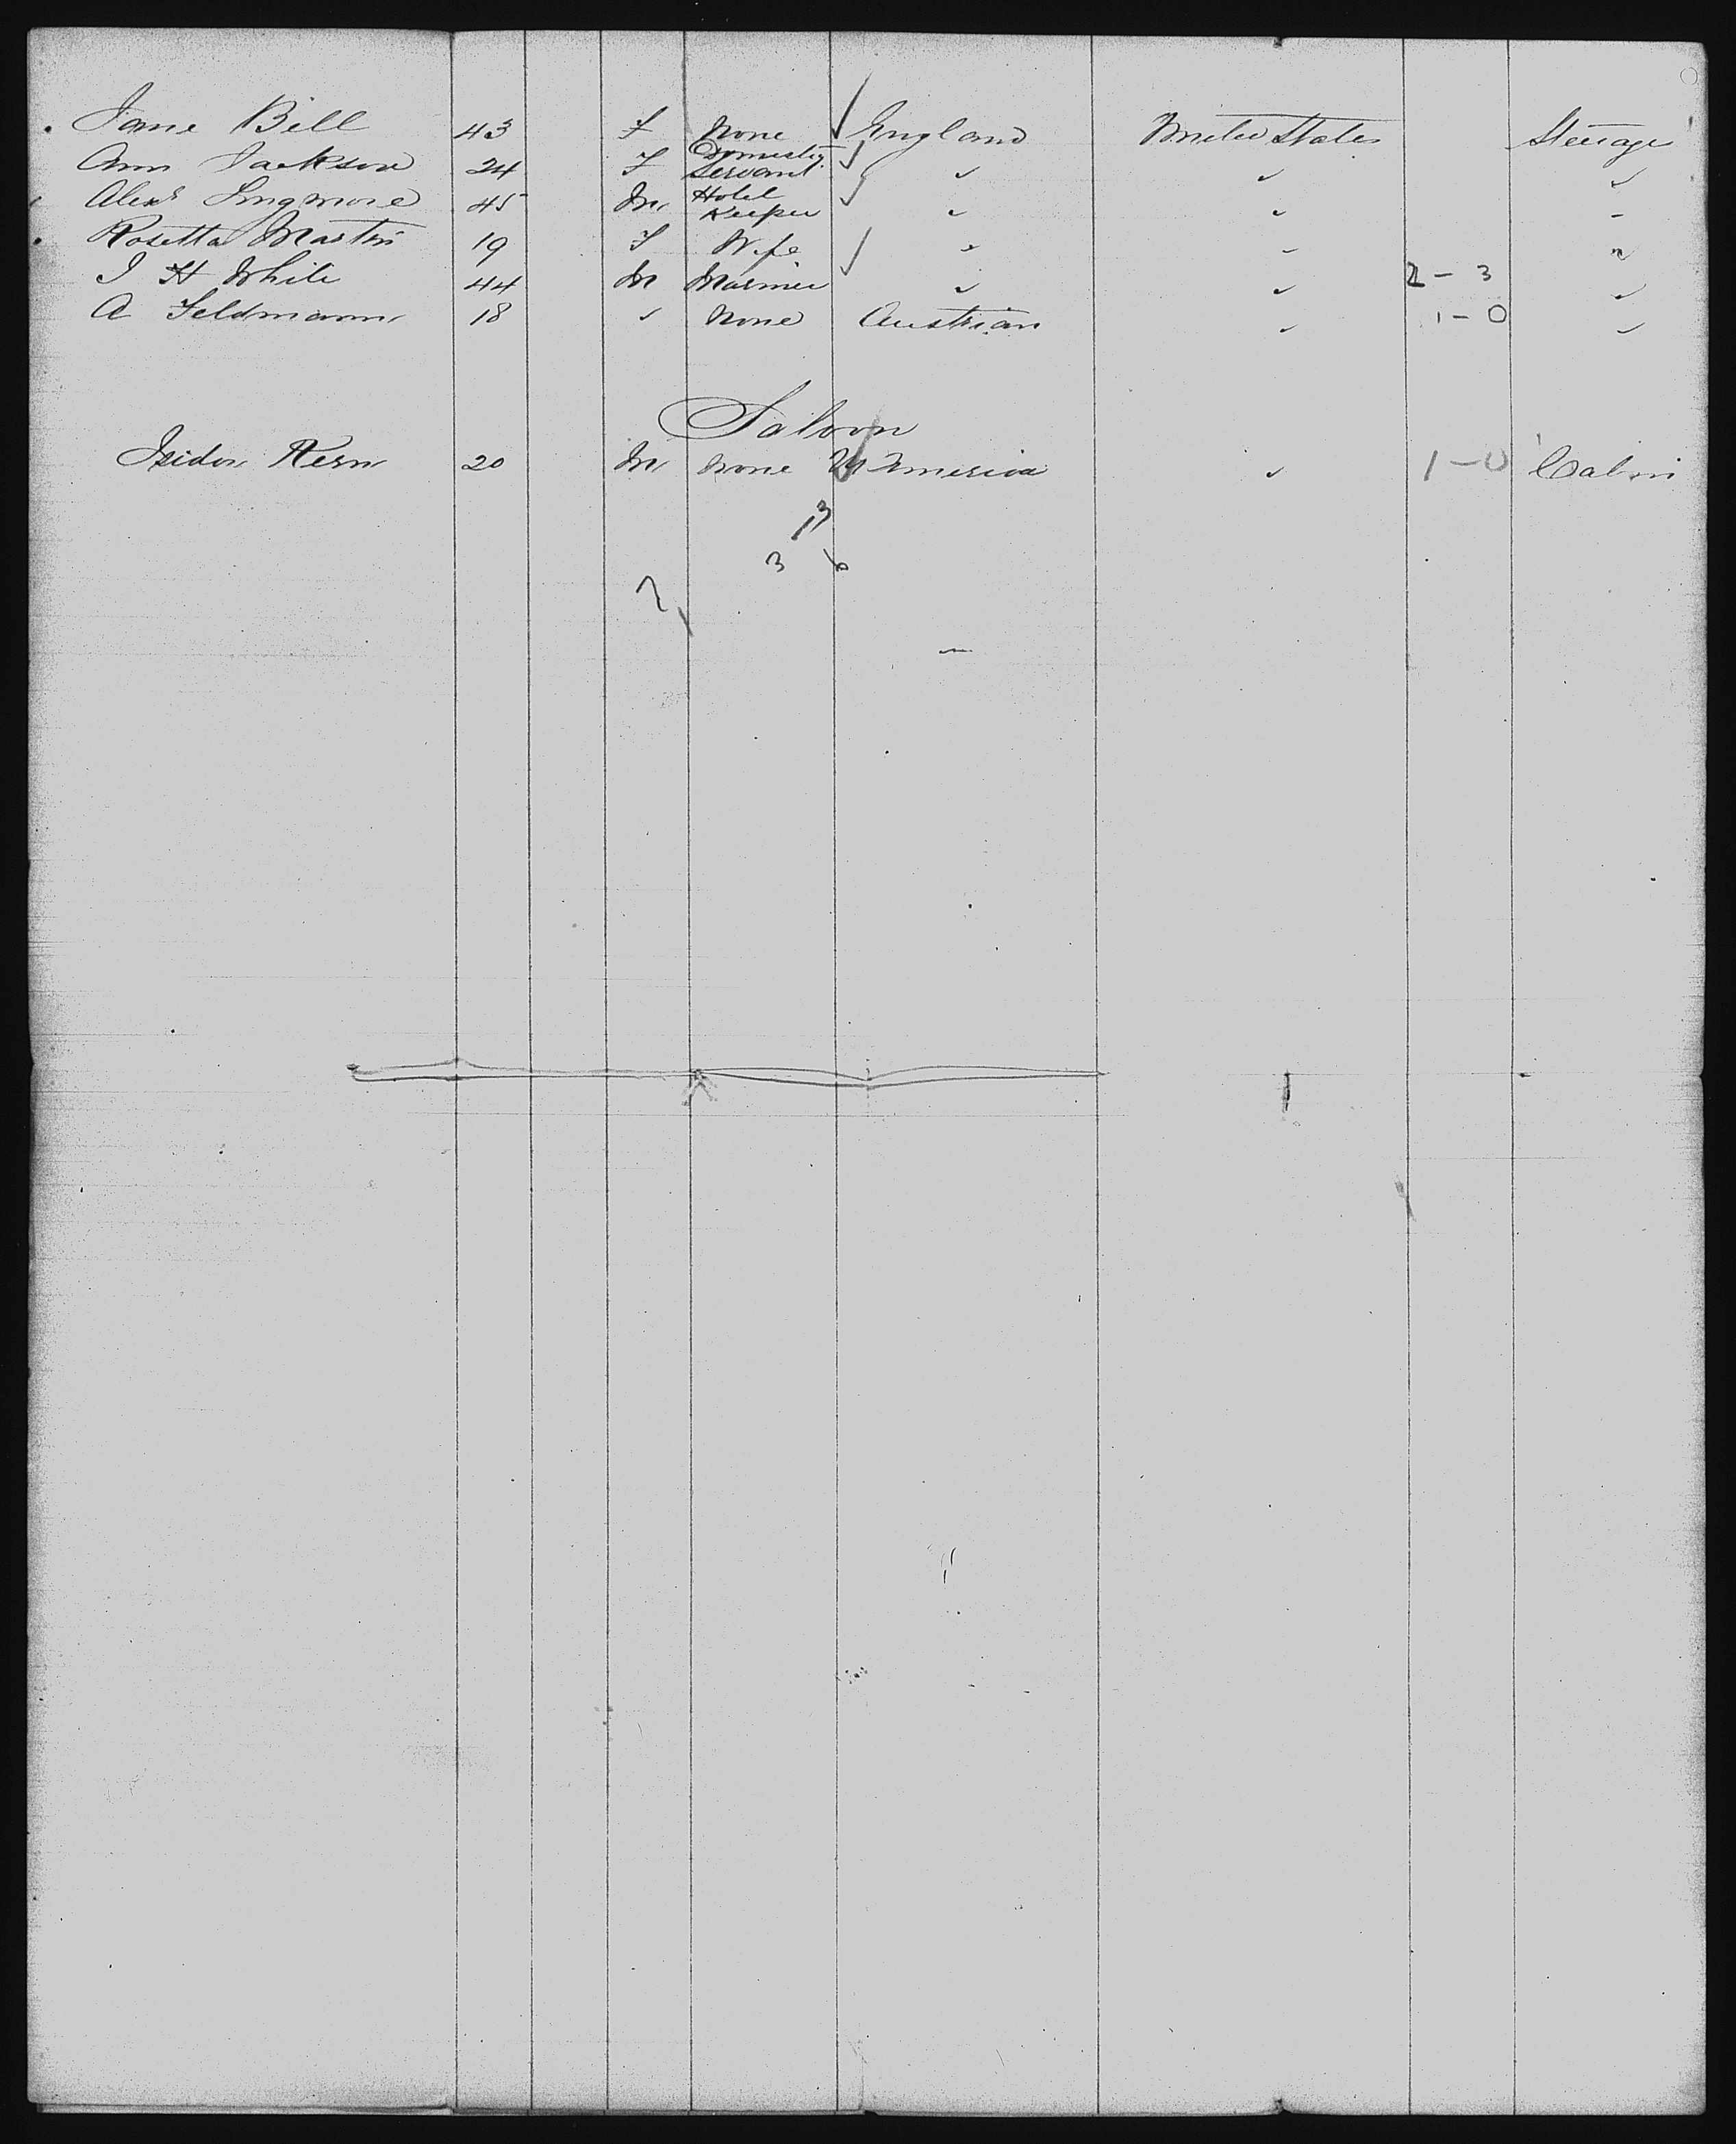 Jane Bell 43 F None England United States Steerage
Ann Jackson 24 F Domestic Servant " " "
Alexr Longmore 45 M Hotel Keeper " " "
Rosetta Martin 19 F Wife " " "
J H White 44 M Mariner " " 2-3 "
A Feldmann 18 " None Austrian " 1-0 "
Saloon
Isidor Kern 20 M None N America " 1-0 Cabin
13
3 6
2